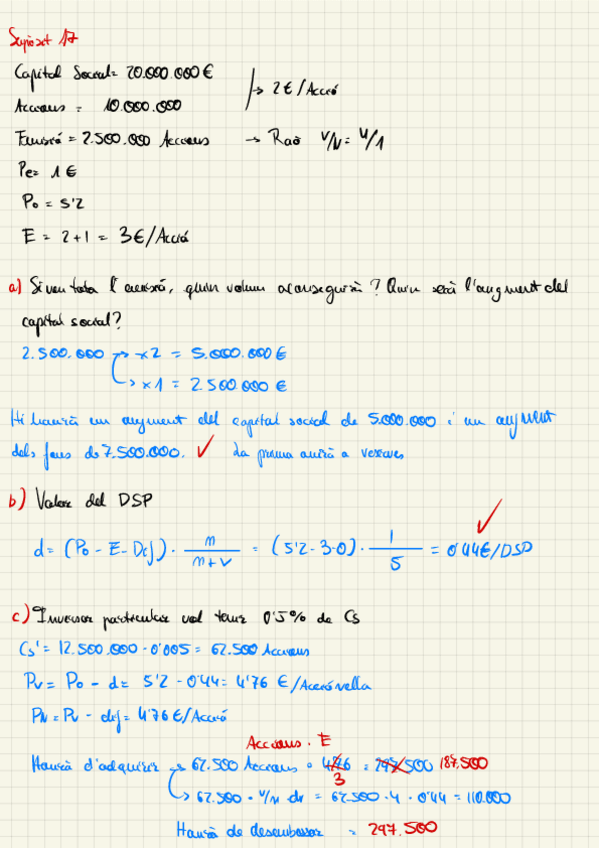 Supòsit 17
Capital Social = 20.000.000 €
→ 2€/Acció
Accions = 10.000.000
Emissió = 2.500.000 Accions → Raó V/N = 4/1
Pe = 1 €
Po = 5'2
E = 2+1 = 3€/Acció
a) Si ven tota l'emissió, quin volum aconseguirà? Quin serà l'augment del
capital social?
2.500.000 → x2 = 5.000.000 €
→ x1 = 2.500.000 €
Hi haurà un augment del capital social de 5.000.000 i un augment
dels fons de 7.500.000. ✓ La prima anirà a reserves
b) Valor del DSP
d = (Po - E - Dif) · n/(n+v) = (5'2-3-0) · 1/5 = 0'44€/DSP ✓
c) Inversor particular vol tenir 0'5% de Cs
Cs' = 12.500.000 · 0'005 = 62.500 Accions
Pv = Po - d = 5'2 - 0'44 = 4'76 €/Acció vella
PN = Pv - dif = 4'76 €/Acció
Accions · E
Haurà d'adquirir → 62.500 Accions · 4'76 = 297.500 187.500
3
→ 62.500 · V/N · d = 62.500 · 4 · 0'44 = 110.000
Haurà de desembossar = 297.500